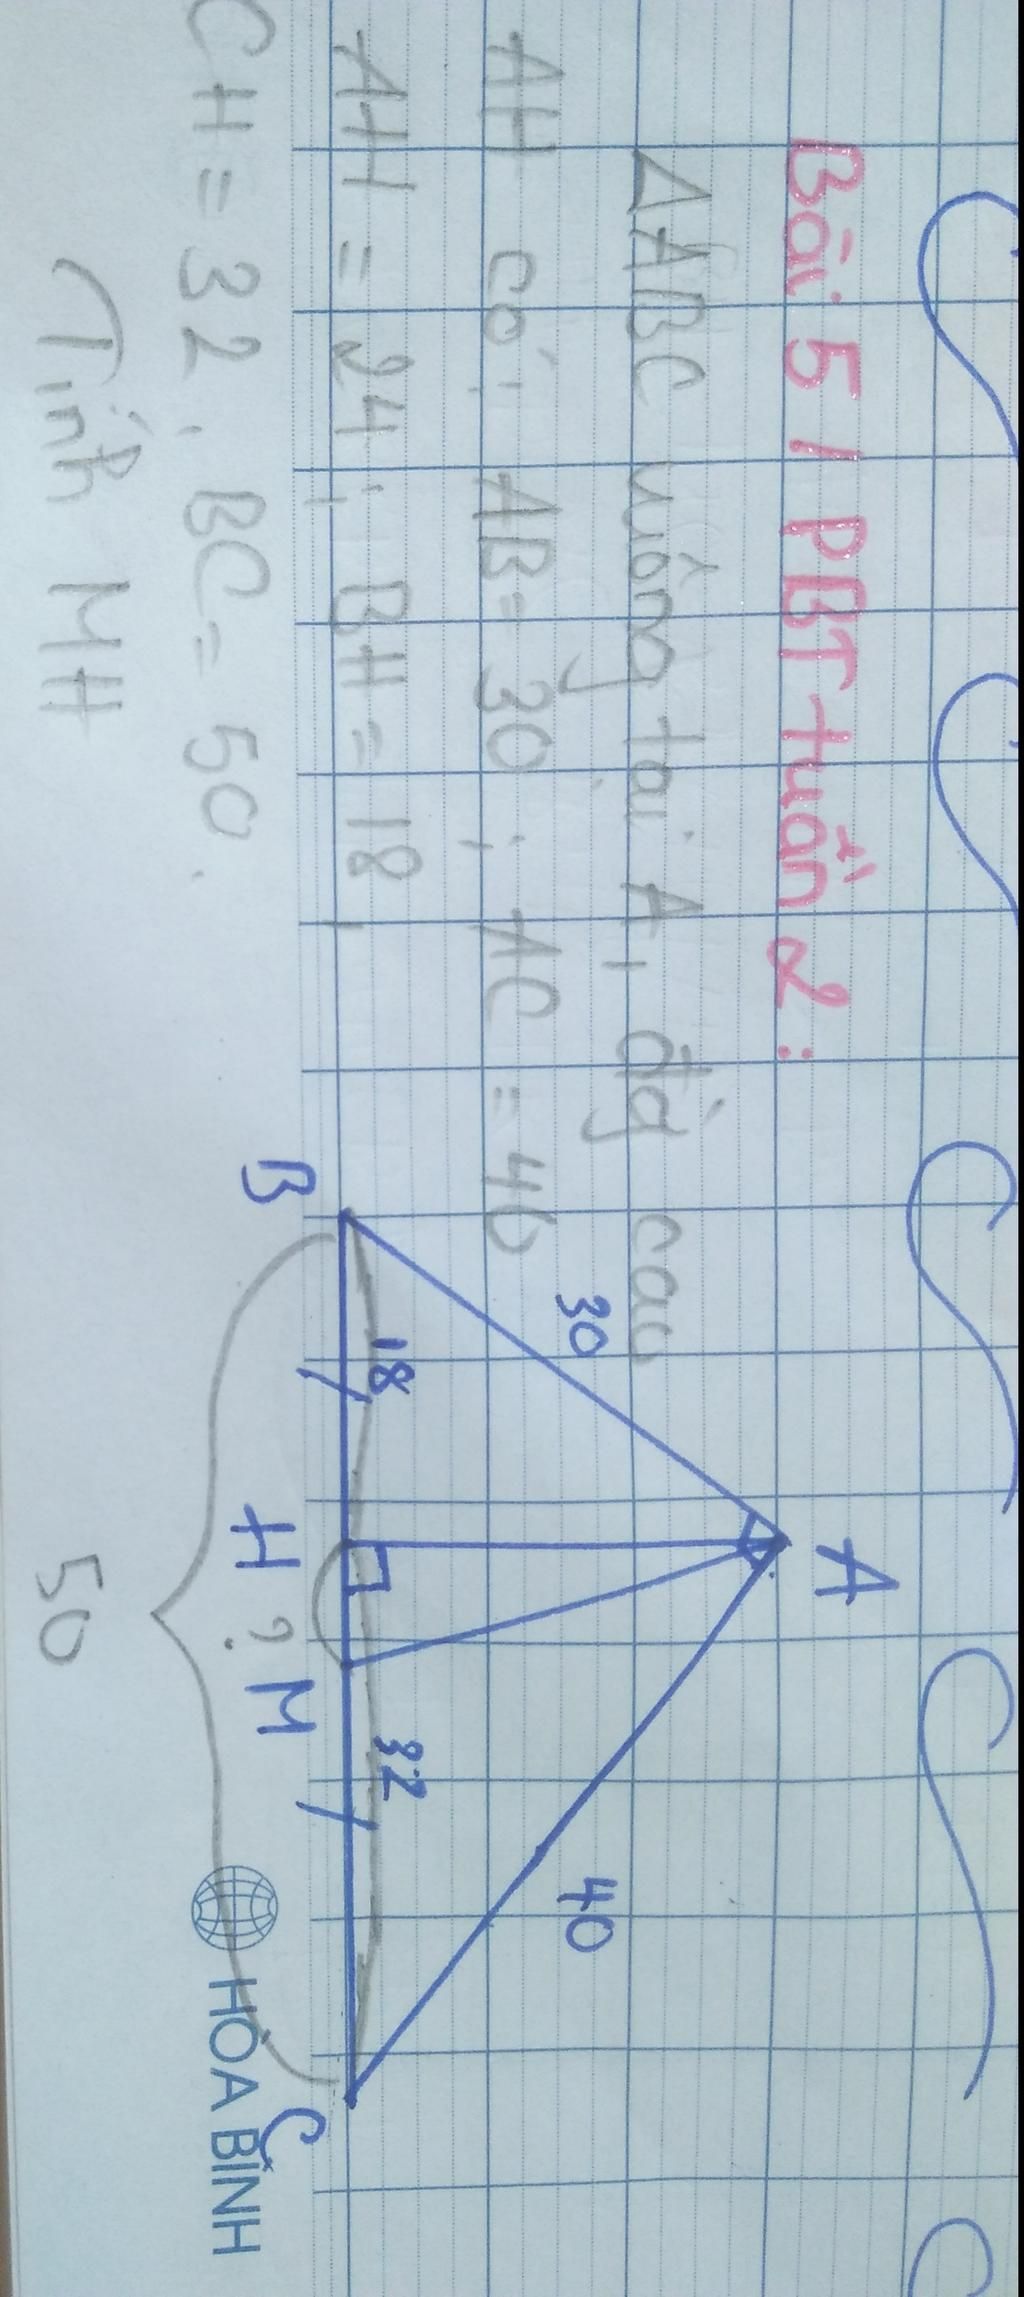 Bài 5 / PBT tuần 2:
ΔABC vuông tại A, đg cao
AH có: AB = 30; AC = 40
AH = 24; BH = 18,
CH = 32, BC = 50.
Tính MH
A
30
40
18
32
B
H
?
M
C
50
HÒA BÌNH